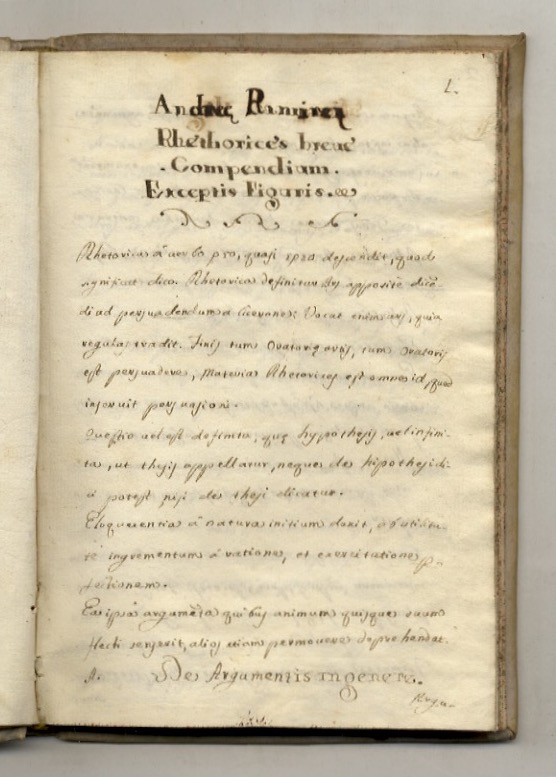 1.
Andreę Ramirez
Rhethorices breue
. Compendium .
Exceptis Figuris.
Rhetorica à verbo pro, quasi rpro descendit, quod
significat dico. Rhetorica definitur Ars apposité dicē-
di ad persuadendum a Cicerone: Vocat enim ars, quia
regulas tradit. Finis tum Oratorię artis, tum Oratoris
est persuadere, Materia Rhetorices est omne id quod
inseruit persuasioni.
Questio uel est definita, quę hypothesis, uel infini-
ta, ut thesis appellatur, neque de hipothesi di-
ci potest, nisi de thesi dicatur.
Eloquentia à natura initium duxit, ab
te ingrementum à ratione, et exercitatione p-
fectionem.
Ea ipsa argumēta quibus animum quisque suum
flecti senserit, alios etiam permouere deprehendet.
De Argumentis in genere.
Argu-